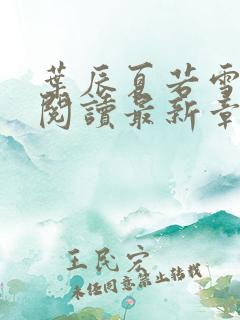 葉辰夏若雪
閱讀最新章
王民宏
未經同意禁止轉載